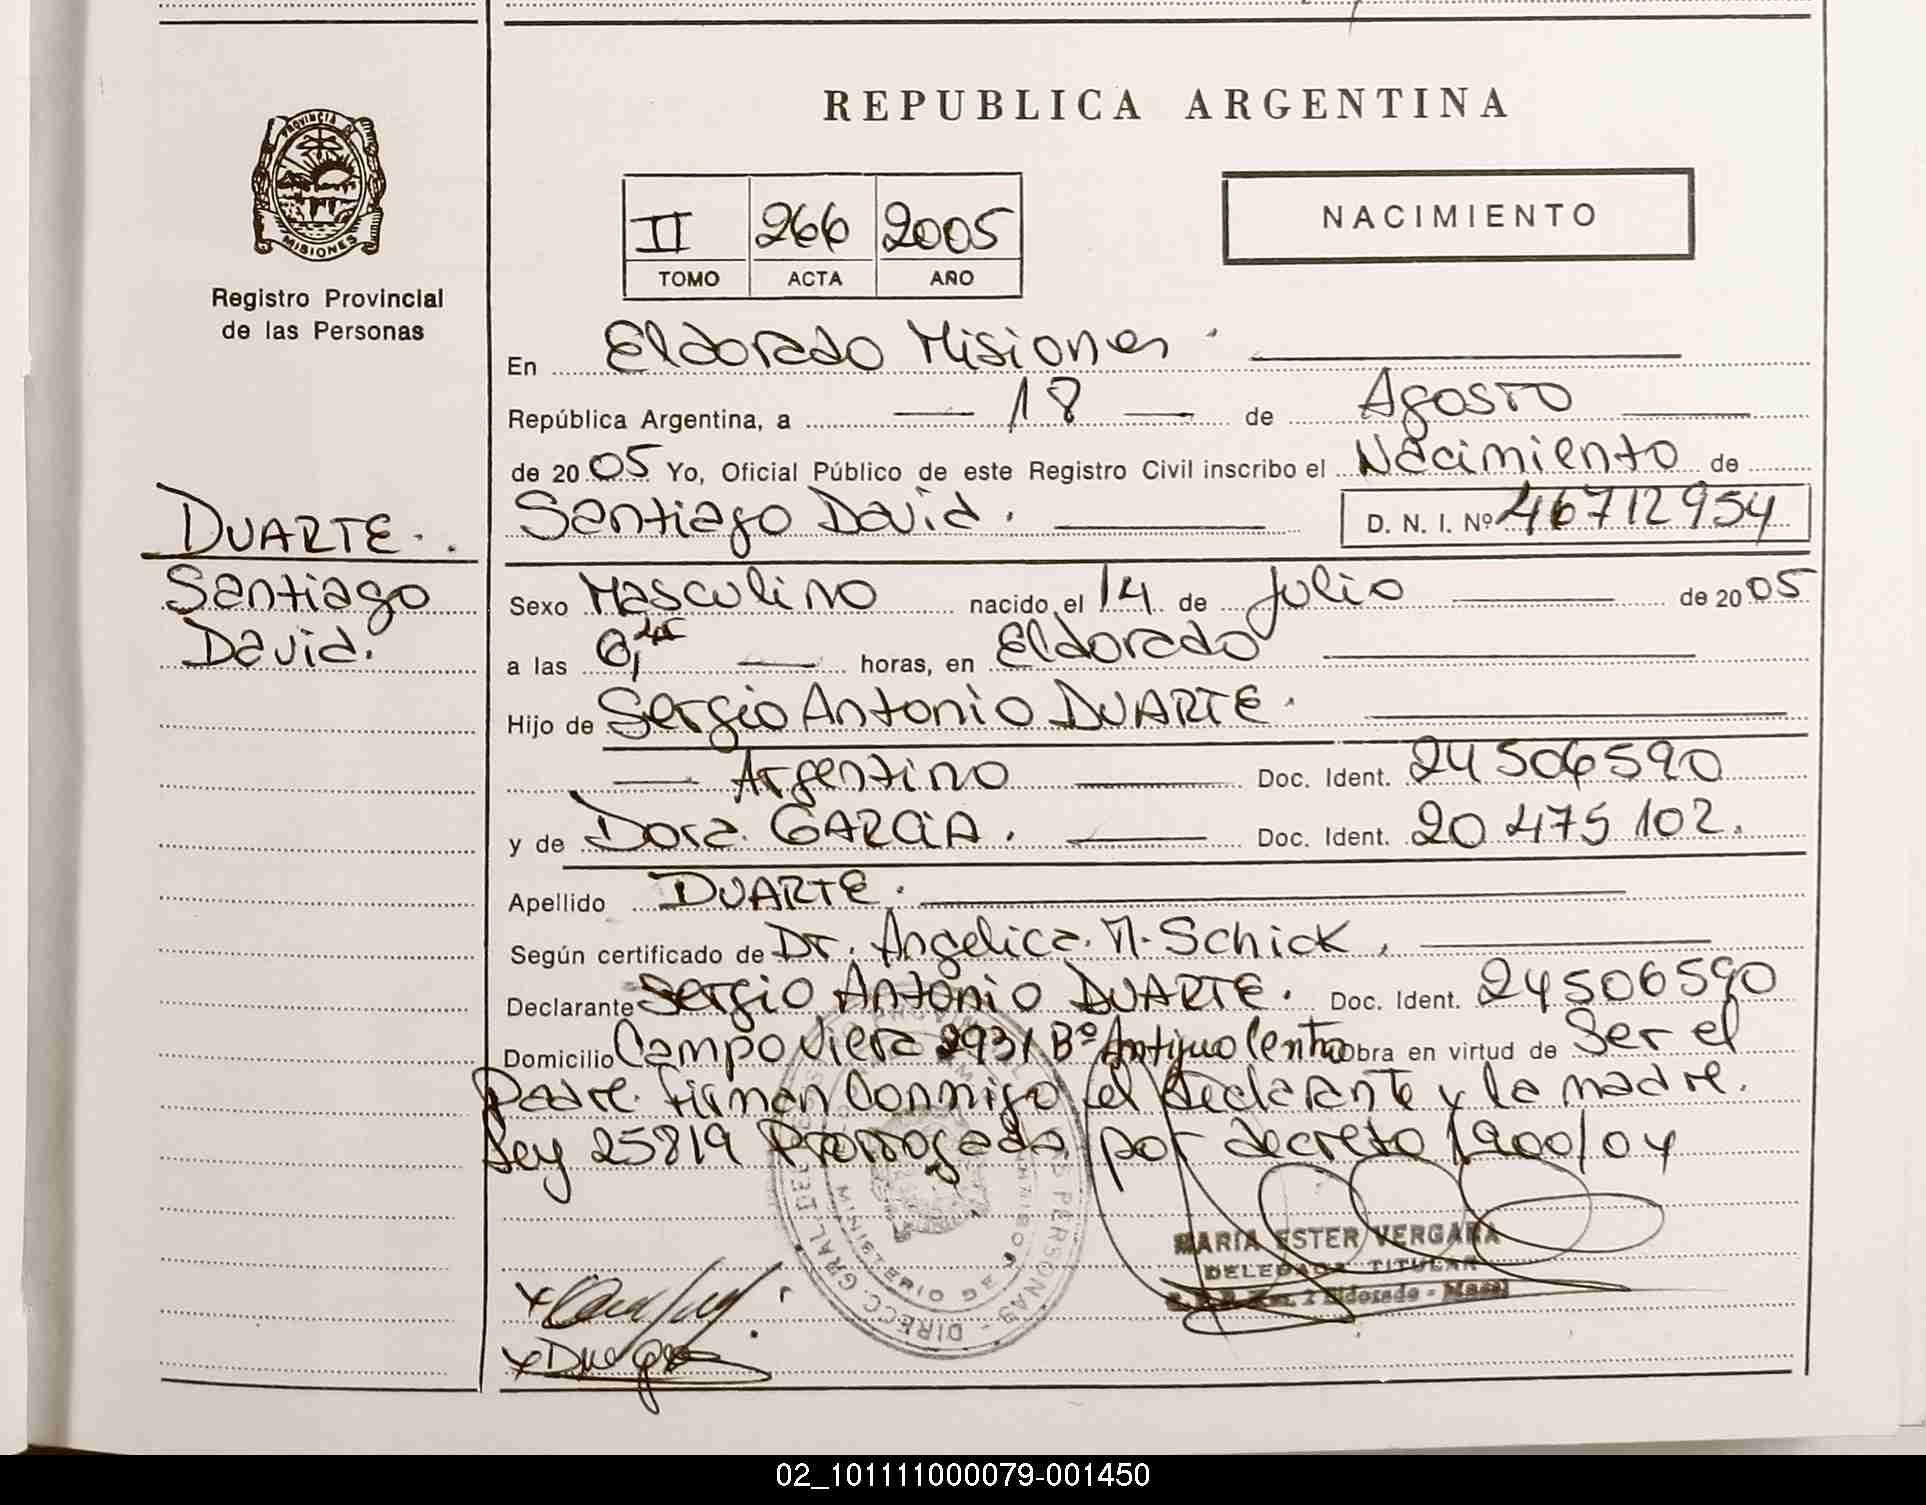 REPUBLICA ARGENTINA
PROVINCIA DE
MISIONES
Registro Provincial
de las Personas
II 266 2005
TOMO ACTA AÑO
NACIMIENTO
En Eldorado Misiones.
República Argentina, a 18 de Agosto
de 2005 Yo, Oficial Público de este Registro Civil inscribo el Nacimiento de
Santiago David. D. N. I. Nº 46712954
DUARTE.
Santiago
David.
Sexo Masculino nacido el 14 de Julio de 2005
a las horas, en Eldorado
Hijo de Sergio Antonio DUARTE.
Argentino Doc. Ident. 24506590
y de Dora. GARCIA. Doc. Ident. 20475102.
Apellido DUARTE.
Según certificado de Dr. Angelica. M. Schick.
Declarante Sergio Antonio DUARTE. Doc. Ident. 24506590
Domicilio Campo Viera 2931 Bº Antiguo Centro Obra en virtud de Ser el
Padre. Firman Conmigo el declarante y la madre.
Ley 25819 Prorrogada por decreto 1900/04
MARIA ESTER VERGARA
DELEGADA TITULAR
Km. 2 Eldorado - Mnes
DIRECC. GRAL. DEL PERSONAS
MINISTERIO DE
02_101111000079-001450